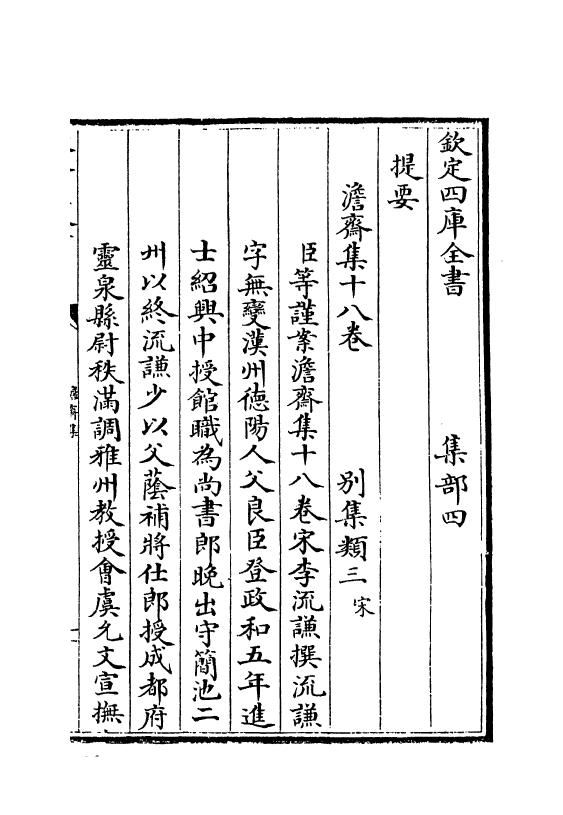 欽定四庫全書　集部四
提要
澹齋集十八卷　别集類三宋
臣等謹案澹齋集十八卷宋李流謙撰流謙
字無變漢州徳陽人父良臣登政和五年進
士紹興中授館職為尚書郎晚出守簡池二
州以終流謙少以父蔭補將仕郎授成都府
靈泉縣尉秩滿調雅州教授會虞允文宣撫